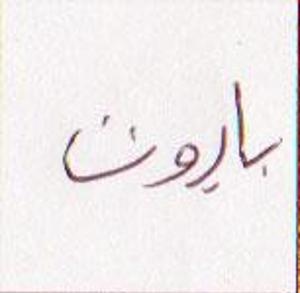 بارون